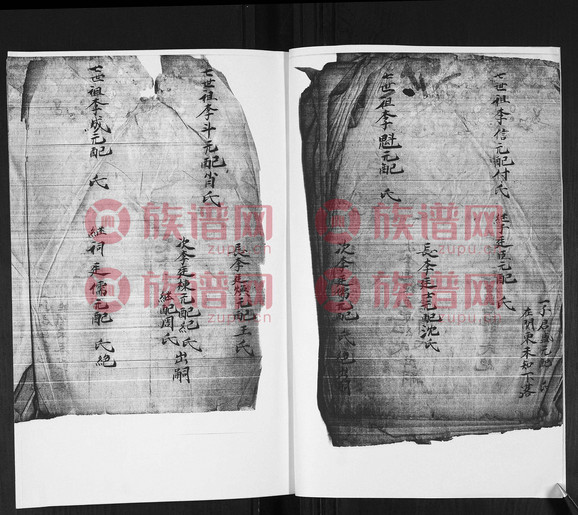 七世祖李信元配付氏 継李廷臣元配 氏
在関東未知下落
七世祖李魁元配 氏
長李廷吉配沈氏
次李廷儒元配 氏絶出嗣
七世祖李斗元配肖氏
長李廷 元配王氏
次李廷棟元配紀氏 出嗣
継配周氏
七世祖李成元配 氏 継祠廷儒元配 氏絶
族谱网
zupu.cn
族谱网
zupu.cn
族谱网
zupu.cn
族谱网
zupu.cn